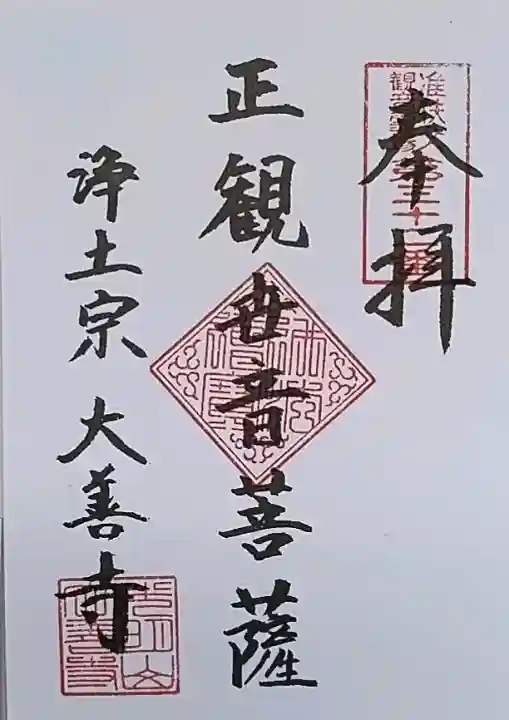 奉拝
正観世音菩薩
浄土宗 大善寺